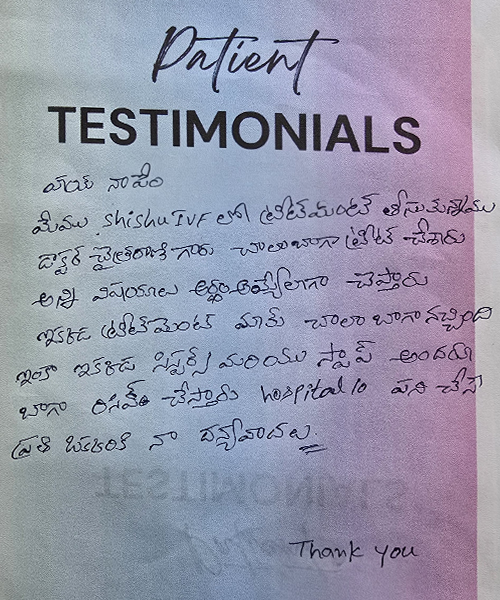 Patient
TESTIMONIALS
హాయ్ నా పేరు
మేము shishu IVF లో ట్రీట్‌మెంట్ తీసుకున్నాము
డాక్టర్ చైత్రరాణి గారు చాలా బాగా ట్రీట్ చేశారు
అన్ని విషయాలు అర్థం అయ్యేలాగా చెప్తారు
ఇక్కడ ట్రీట్‌మెంట్ మాకు చాలా బాగా నచ్చింది
ఇంకా ఇక్కడ సిస్టర్స్ మరియు స్టాఫ్ అందరూ
బాగా రిసీవ్ చేస్తారు hospital lo పని చేసే
ప్రతి ఒక్కరికి నా ధన్యవాదాలు
Thank you